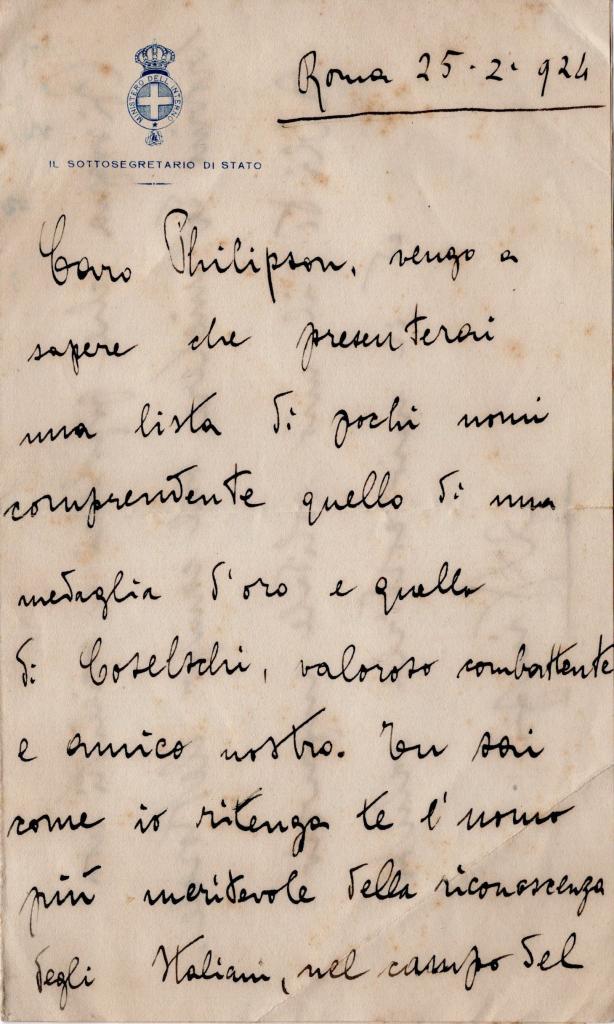 Roma 25·2·924
MINISTERO DELL'INTERNO
IL SOTTOSEGRETARIO DI STATO
Caro Philipson, vengo a
sapere che presenterai
una lista di pochi nomi
comprendente quello di una
medaglia d'oro e quello
di Coselschi, valoroso combattente
e amico nostro. Tu sai
come io ritenga te l'uomo
più meritevole della riconoscenza
degli Italiani, nel campo del